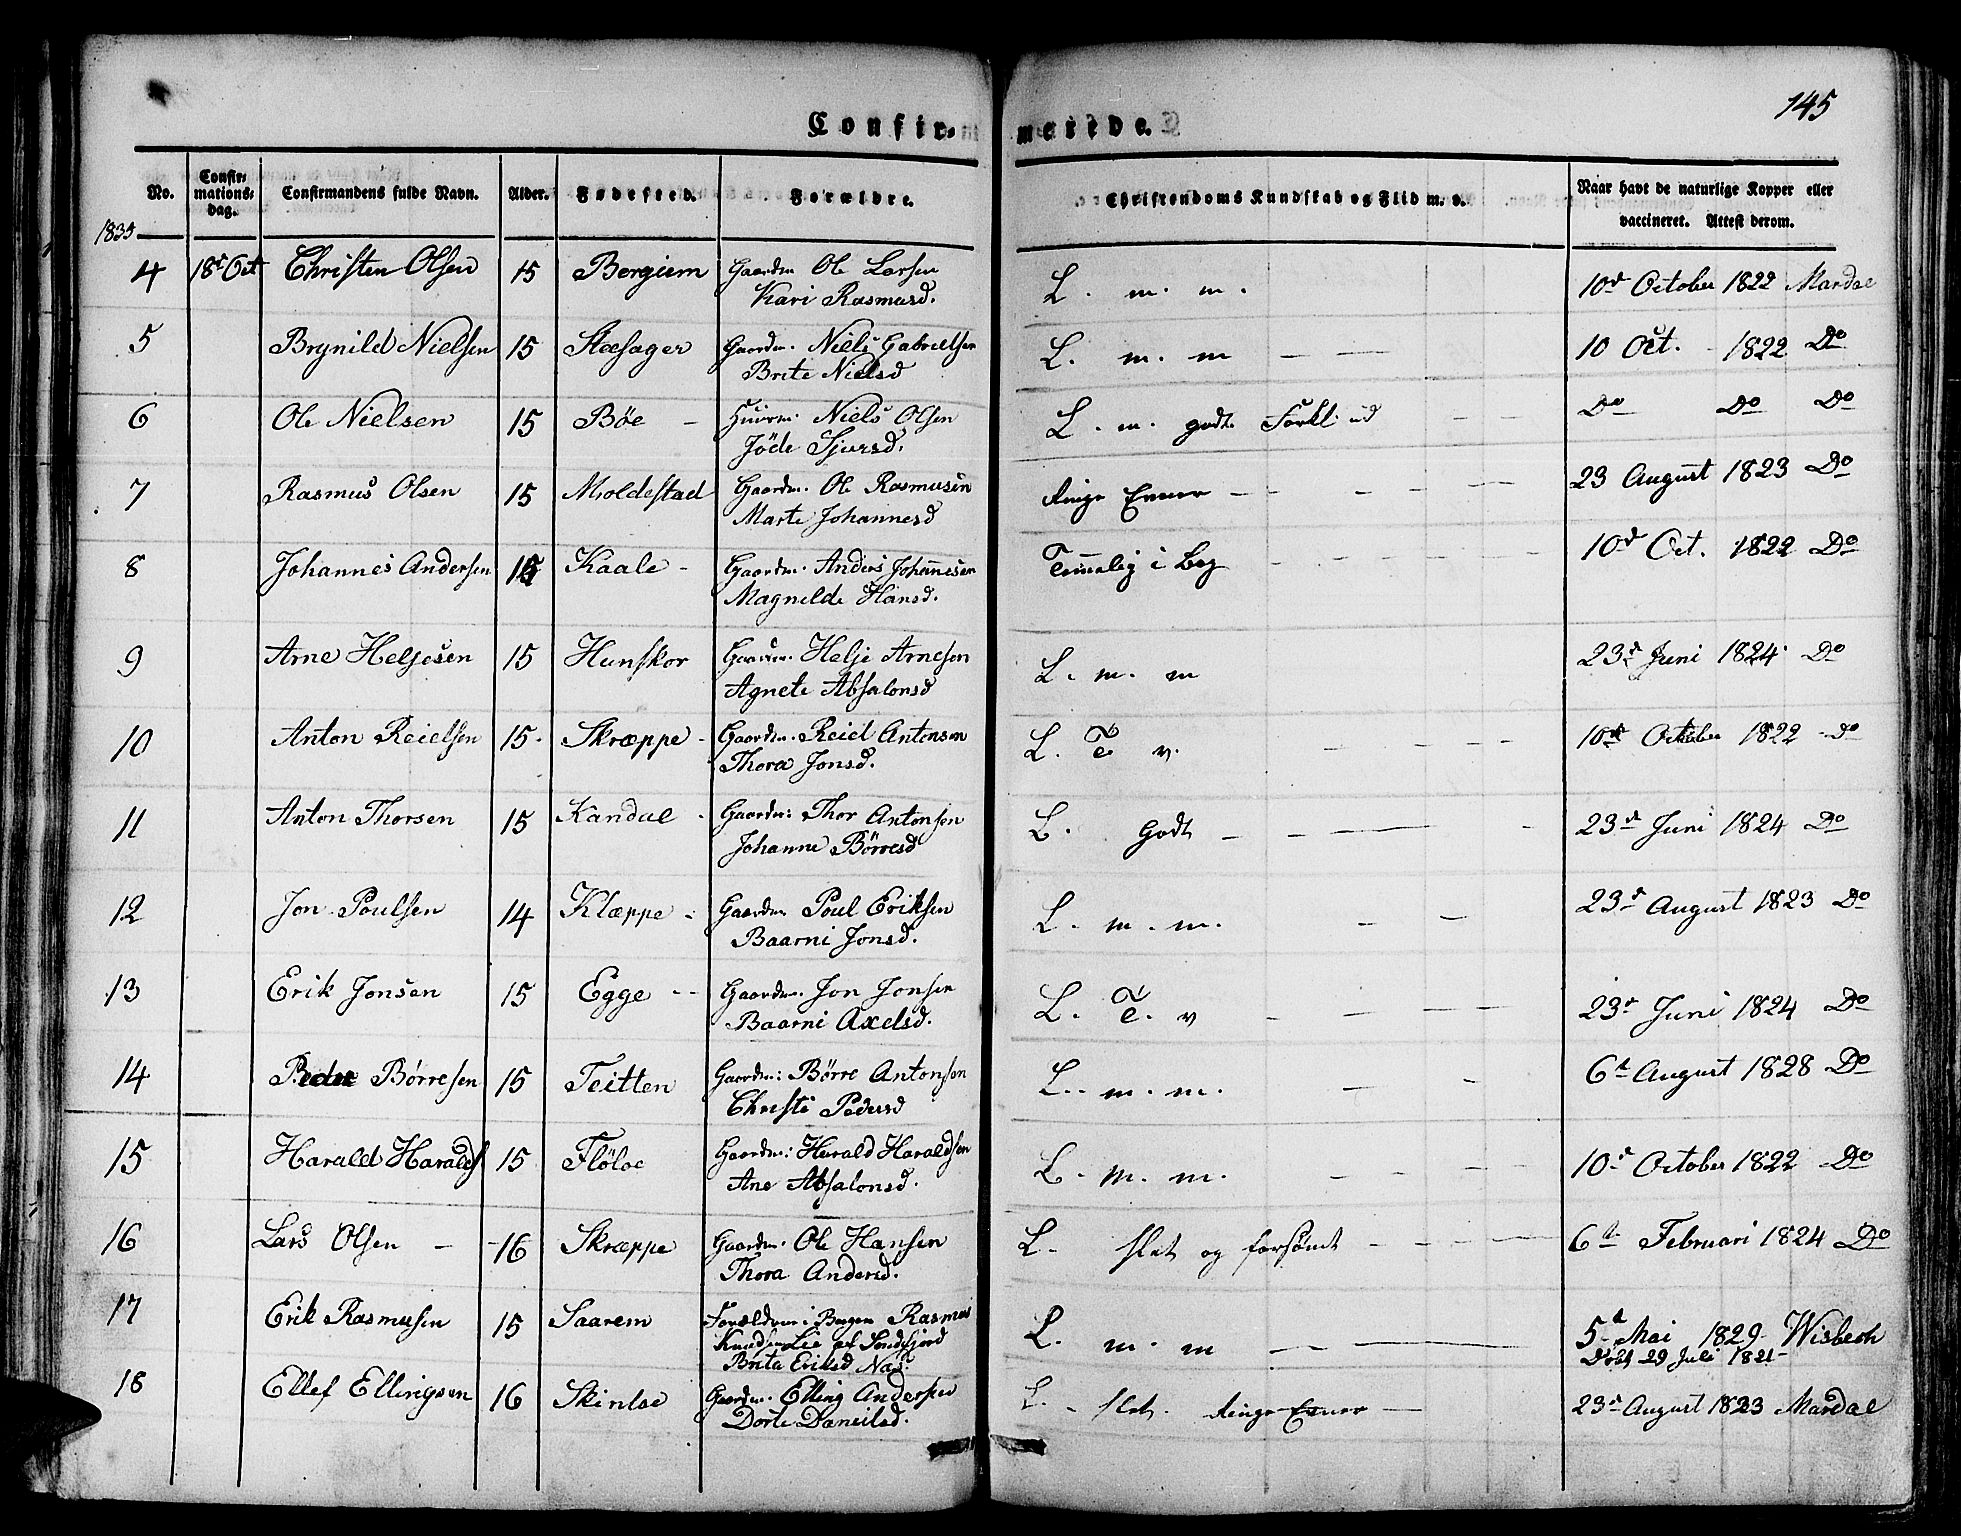 145
Confir- marede.
No. Confir-mations-dag. Confirmandens fulde Navn. Alder. Fødested. Forældre. Christendoms Kundskab og Flid m. v. Naar havt de naturlige Kopper eller vaccineret. Attest derom.
1835
4 18d Oct Christen Olsen 15 Bergiem Gaardm Ole Larsen L. m. m. 10d October 1822 Mardal
Kari Rasmusd.
5 Brynild Nielsen 15 Støesager Gaardm. Niels Gabrielsen L. m. m — — 10 Oct. 1822 Do
Brite Nielsd
6 Ole Nielsen 15 Bøe - Huusm. Niels Olsen L. m. godt Forkl. Do Do Do
Jöde Sjursd.
7 Rasmus Olsen 15 Moldestad Gaardm. Ole Rasmusen Ringe Evner 23 August 1823 Do
Marte Johannesd
8 Johannes Andersen 15 Kaale - Gaardm. Anders Johannesen Temmelig i Bog 10d Oct. 1822 Do
Magnilde Hansd.
9 Arne Heljesen 15 Hunskor Gaardm. Helje Arnesen L. m. m 23d Juni 1824 Do
Agnete Absalonsd
10 Anton Reielsen 15 Skræppe - Gaardm. Reiel Antonsen L. T v. 10d October 1822 Do
Thora Jonsd.
11 Anton Thorsen 15 Kandal - Gaardm: Thor Antonsen L. Godt 23d Juni 1824 Do
Johanne Börresd
12 Jon Poulsen 14 Klæppe - Gaardm Poul Eriksen L. m. m. 23d August 1823 Do
Baarni Jonsd.
13 Erik Jonsen 15 Egge -- Gaardm. Jon Jonsen L. T. v 23d Juni 1824 Do
Baarni Axelsd.
14 Peder Börresen 15 Teitten Gaardm: Börre Antonsen L. m. m. 6d August 1828 Do
Christi Pedersd
15 Harald Haralds 15 Flöloe Gaardm: Harald Haraldsen L. m. m. 10d October 1822 Do
Ane Absalonsd.
16 Lars Olsen - 16 Skræppe Gaardm. Ole Hansen L. slet og forsömt 6d Februari 1824 Do
Thora Andersd.
17 Erik Rasmusen 15 Saarem Forældrene i Bergen Rasmus L. m. m 5d Mai 1829 Wisbech
Knudsen Lie af Söndfjord Döbt 29 Juli 1821
Brita Eriksd Nas.
18 Ellef Ellingsen 16 Skinloe Gaardm. Elling Andersen L. slet. Ringe Evner 23d August 1823 Mardal
Dorte Danielsd.